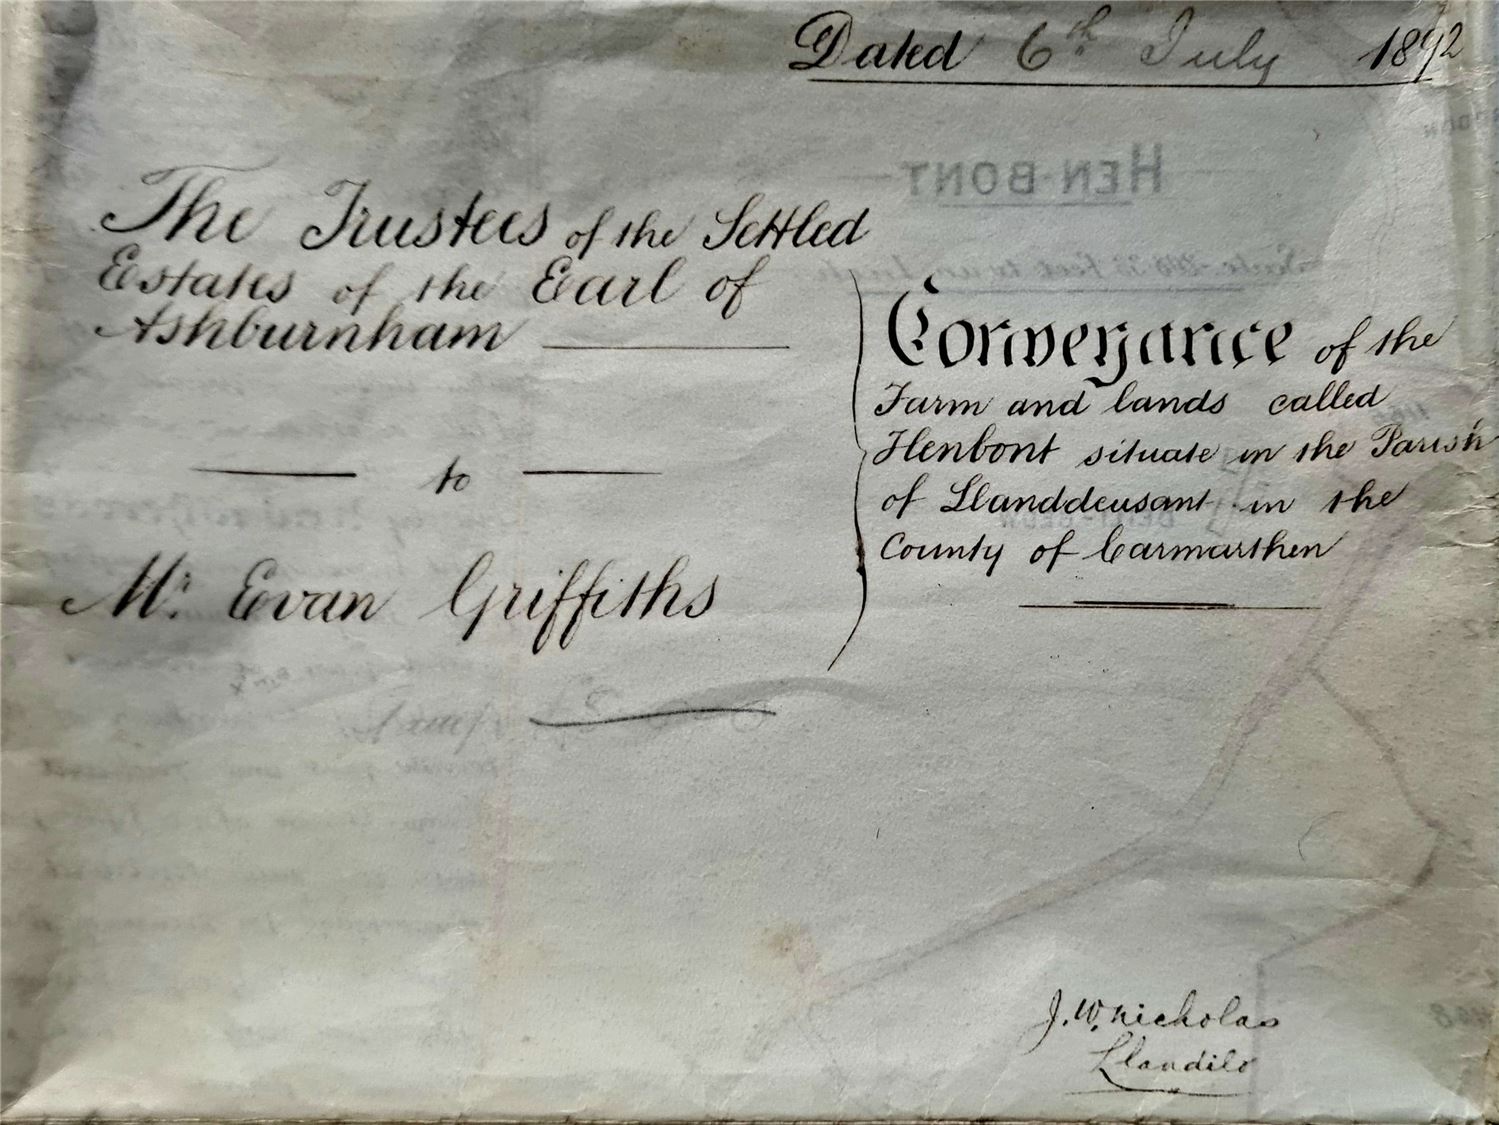 Dated 6th July 1892
The Trustees of the Settled
Estates of the Earl of
Ashburnham
to
Mr. Evan Griffiths
Conveyance of the
Farm and lands called
Henbont situate in the Parish
of Llanddeusant in the
County of Carmarthen
J. W. Nicholas
Llandilo
HEN-BONT